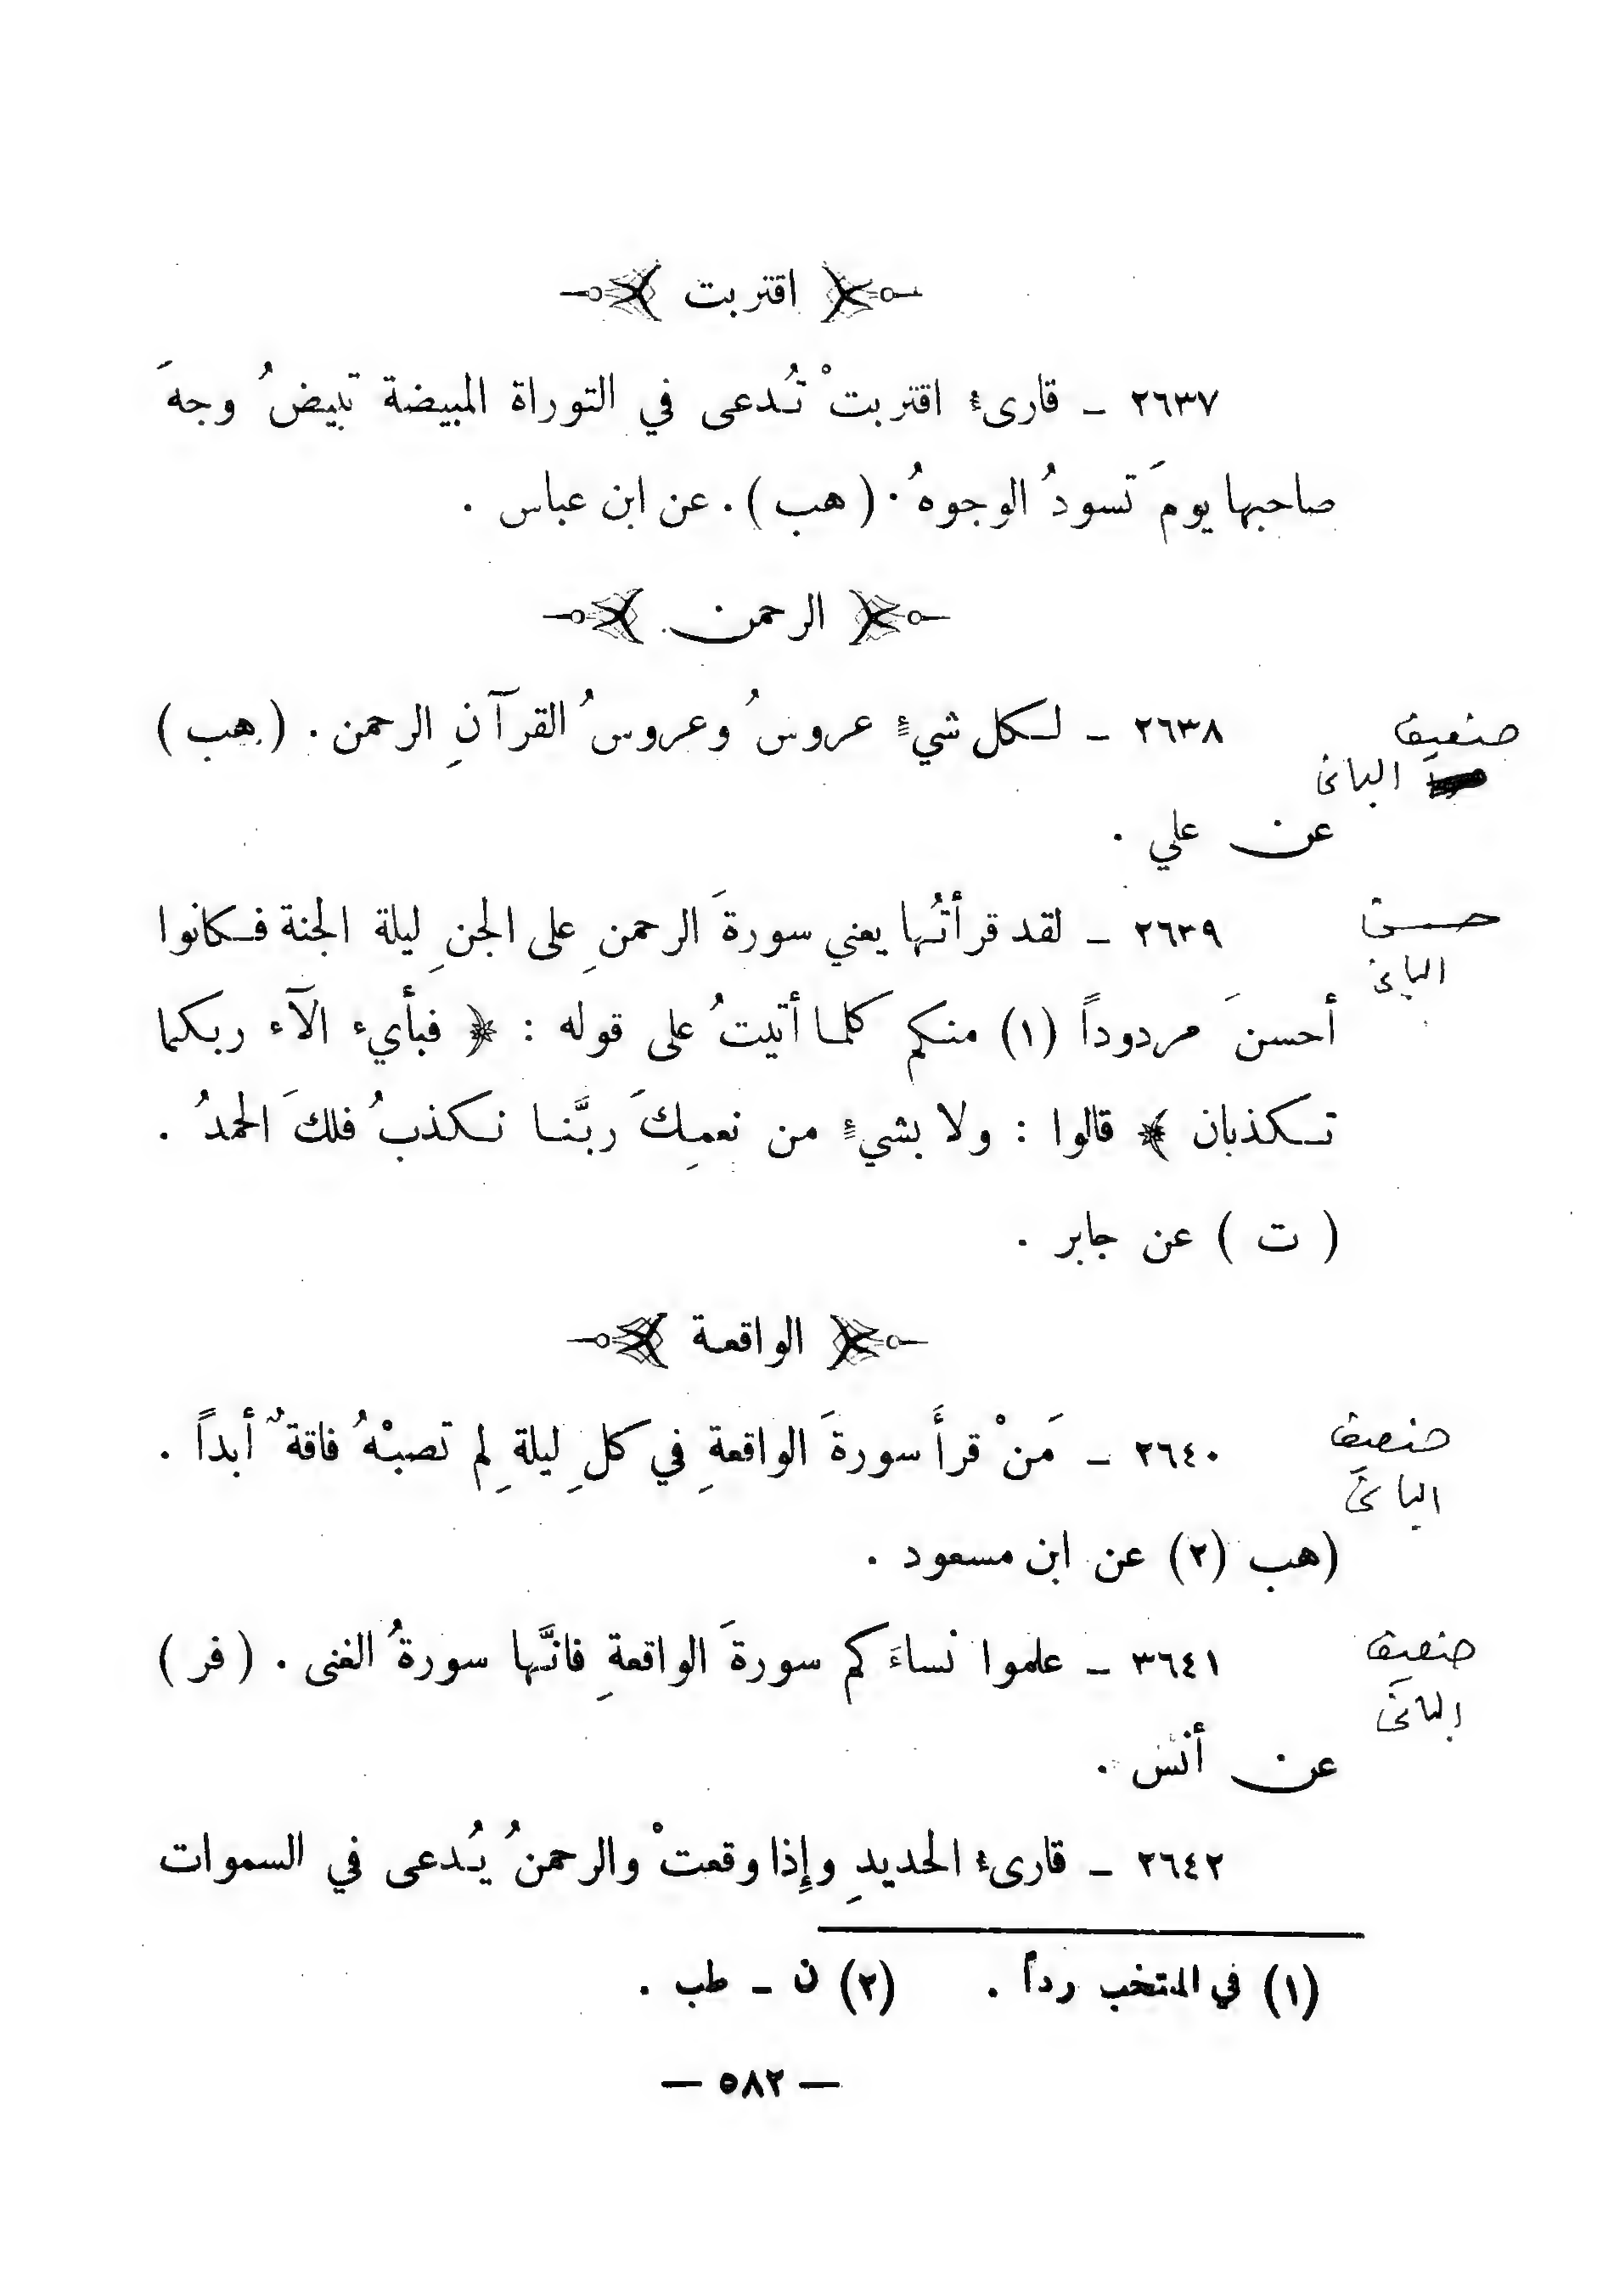 اقتربت
٢٦٣٧ ــ قارىءُ اقتربتْ تُدعى في التوراة المبيضة تبيضُ وجهَ
صاحبها يومَ تسودُ الوجوهُ . ( هب ) . عن ابن عباس .
الرحمن
٢٦٣٨ ــ لكل شيءٍ عروسُ وعروسُ القرآنِ الرحمن . ( هب )
ضعيف
البانى
عن علي .
٢٦٣٩ ــ لقد قرأتُها يعني سورةَ الرحمنِ على الجنِ ليلة الجنة فكانوا
حسن
البانى
أحسنَ مردوداً (١) منكم كلما أتيتُ على قوله : ﴿ فبأيء الآء ربكما
تكذبان ﴾ قالوا : ولا بشيءٍ من نعمِكَ ربَّنا نكذبُ فلكَ الحمدُ .
( ت ) عن جابر .
الواقعة
٢٦٤٠ ــ مَنْ قرأَ سورةَ الواقعةِ في كلِ ليلةِ لم تصبْهُ فاقةٌ أبداً .
ضعيف
البانى
(هب (٢) عن ابن مسعود .
٣٦٤١ ــ علموا نساءَكم سورةَ الواقعةِ فانَّها سورةُ الغنى . ( فر )
ضعيف
البانى
عن أنس .
٢٦٤٢ ــ قارىءُ الحديدِ وإِذا وقعتْ والرحمنُ يُدعى في السموات
(١) في المنتخب رداً . (٢) ن ــ طب .
— ٥٨٢ —